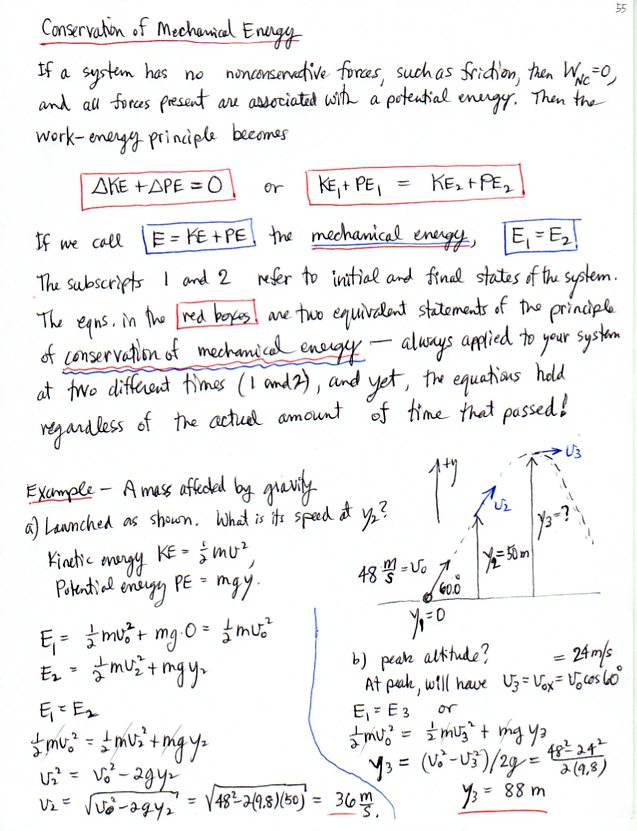 55
Conservation of Mechanical Energy
If a system has no nonconservative forces, such as friction, then W_NC = 0,
and all forces present are associated with a potential energy. Then the
work-energy principle becomes
ΔKE + ΔPE = 0 or KE₁ + PE₁ = KE₂ + PE₂
If we call E = KE + PE the mechanical energy, E₁ = E₂
The subscripts 1 and 2 refer to initial and final states of the system.
The eqns. in the red boxes are two equivalent statements of the principle
of conservation of mechanical energy — always applied to your system
at two different times (1 and 2), and yet, the equations hold
regardless of the actual amount of time that passed!
Example – A mass affected by gravity
a) Launched as shown. What is its speed at y₂?
Kinetic energy KE = ½mv²,
Potential energy PE = mgy.
E₁ = ½mv₀² + mg·0 = ½mv₀²
E₂ = ½mv₂² + mgy₂
E₁ = E₂
½mv₀² = ½mv₂² + mgy₂
v₂² = v₀² - 2gy₂
v₂ = √(v₀² - 2gy₂) = √(48² - 2(9.8)(50)) = 36 m/s.
+y
v₃
v₂
y₃ = ?
y₂ = 50 m
48 m/s = v₀
60.0°
y₁ = 0
b) peak altitude? = 24 m/s
At peak, will have v₃ = v₀ₓ = v₀cos60°
E₁ = E₃ or
½mv₀² = ½mv₃² + mgy₃
y₃ = (v₀² - v₃²)/2g = 48² - 24² / 2(9.8)
y₃ = 88 m